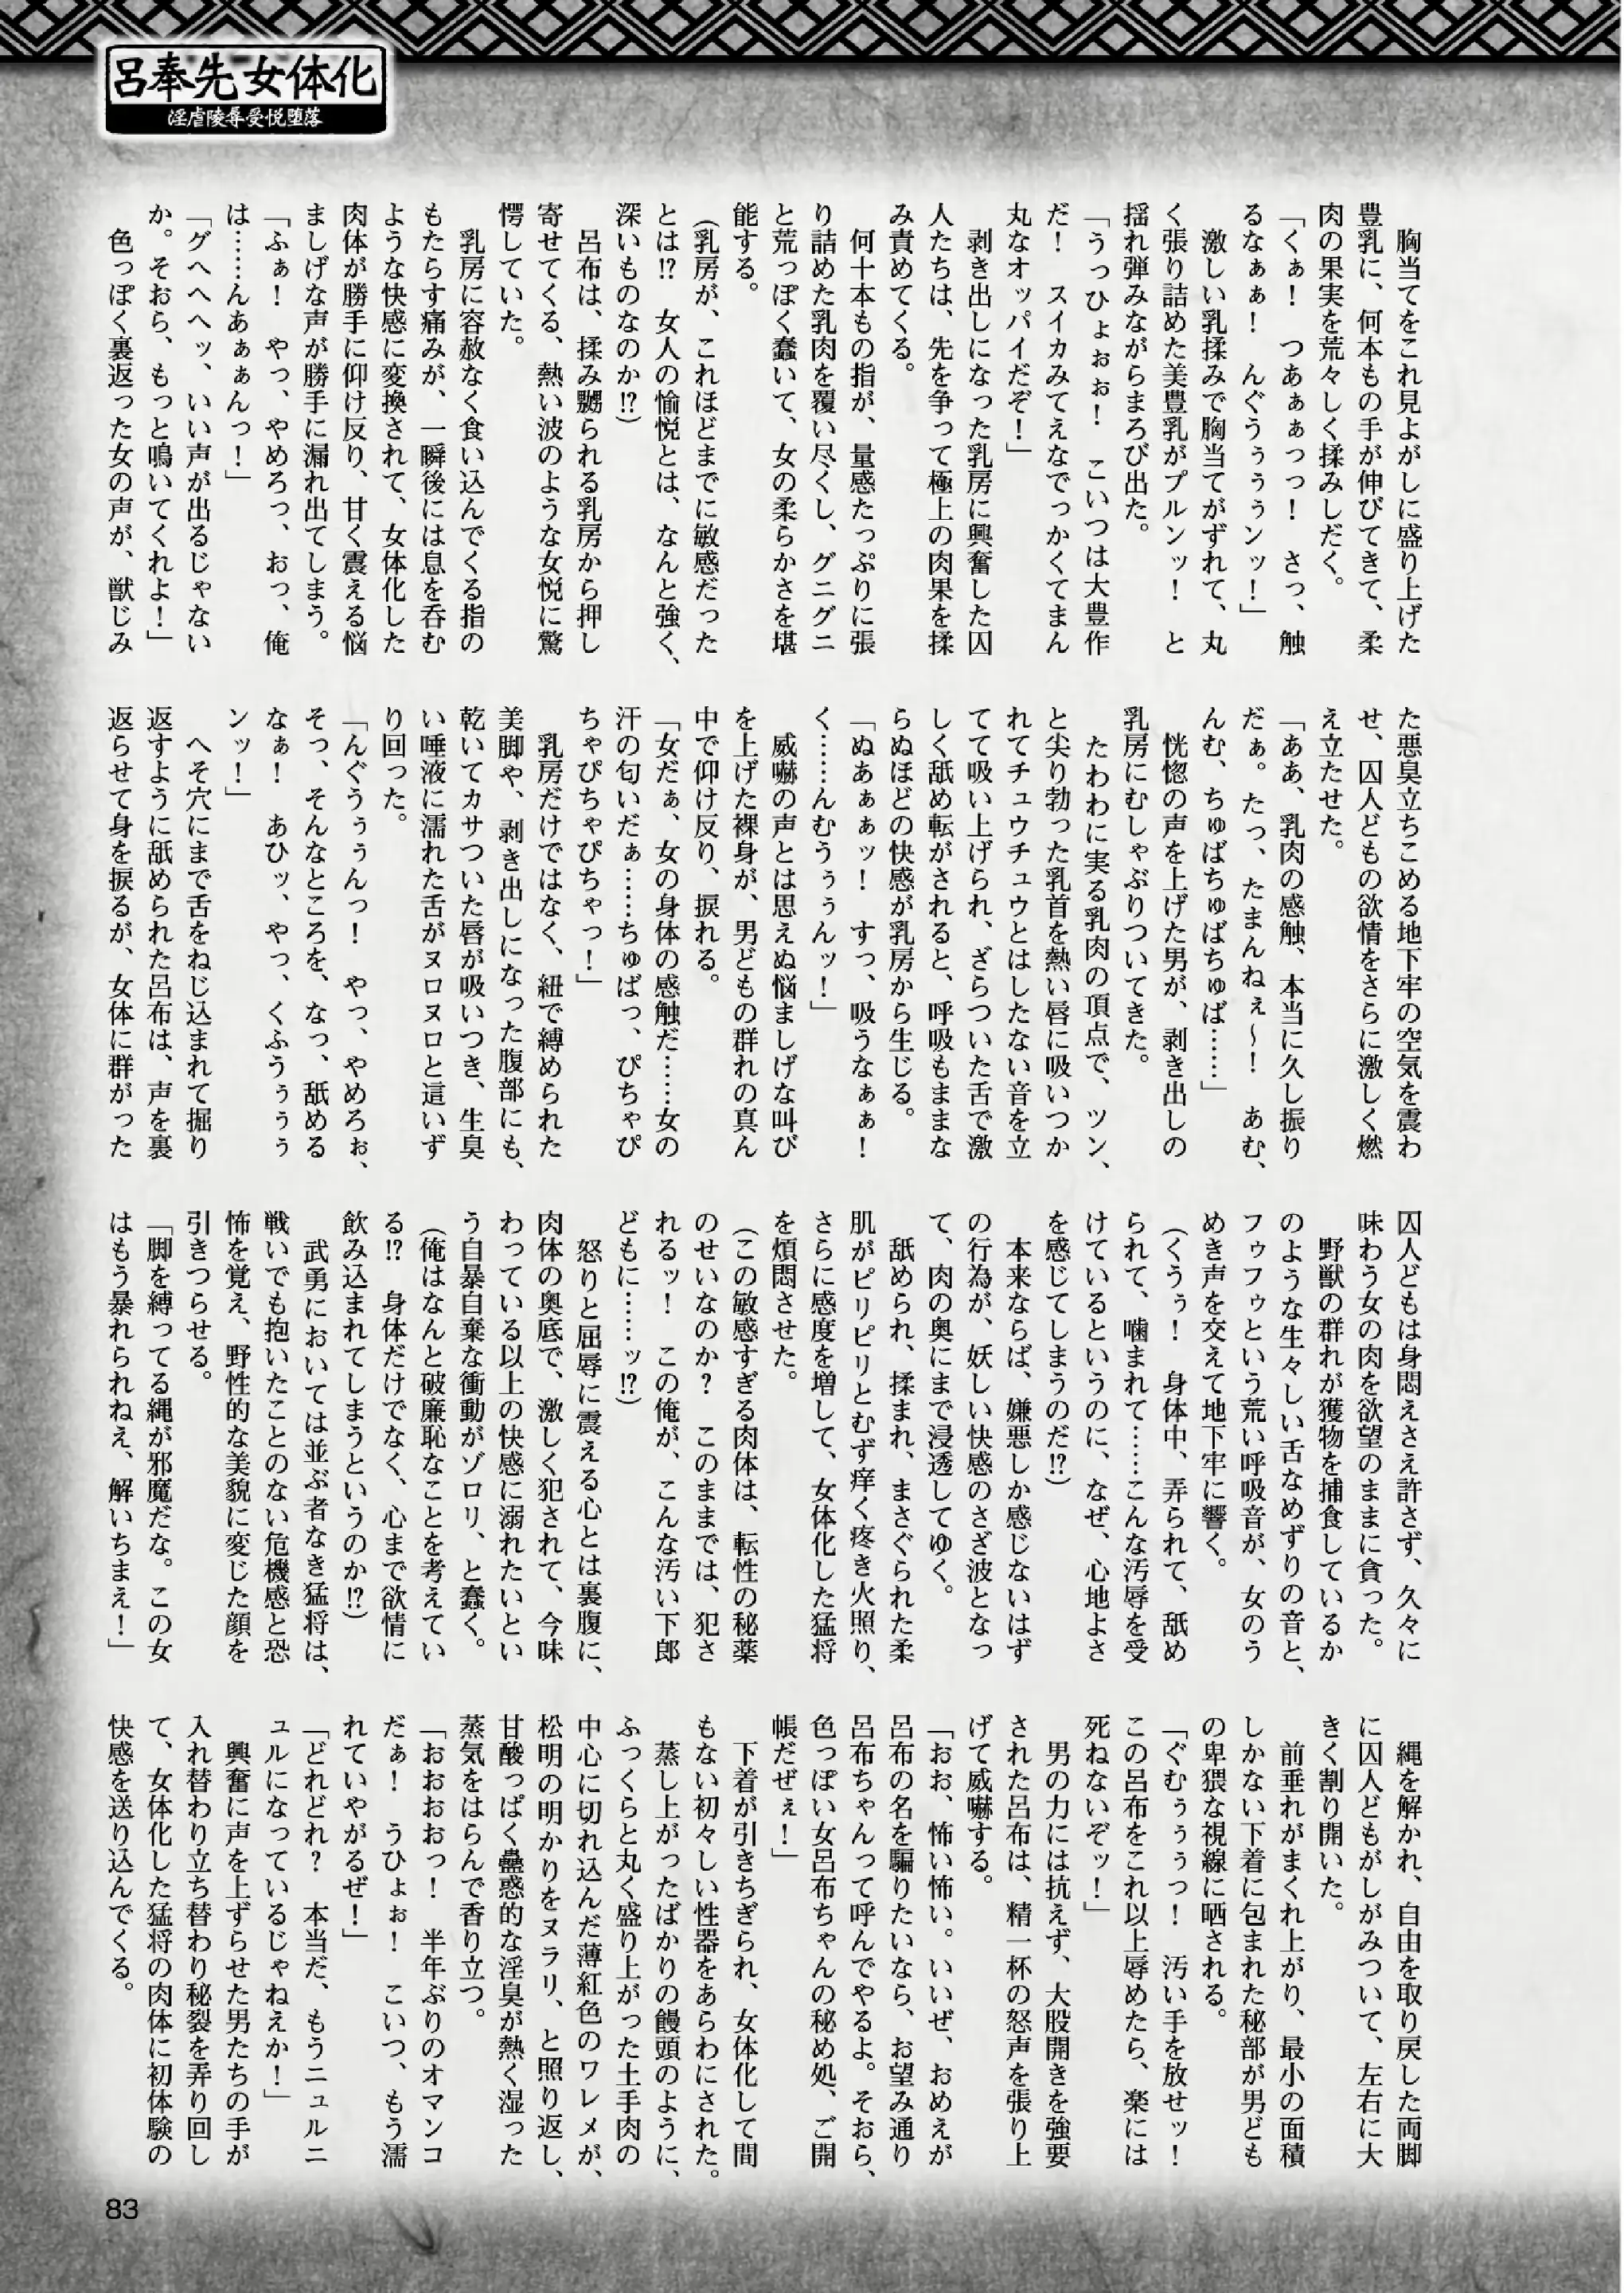 呂奉先女体化
淫虐陵辱受悦堕落
　胸当てをこれ見よがしに盛り上げた
豊乳に、何本もの手が伸びてきて、柔
肉の果実を荒々しく揉みしだく。
「くぁ！　つあぁぁっっ！　さっ、触
るなぁぁ！　んぐうぅぅぅンッ！」
　激しい乳揉みで胸当てがずれて、丸
く張り詰めた美豊乳がプルンッ！　と
揺れ弾みながらまろび出た。
「うっひょぉぉ！　こいつは大豊作
だ！　スイカみてえなでっかくてまん
丸なオッパイだぞ！」
　剥き出しになった乳房に興奮した囚
人たちは、先を争って極上の肉果を揉
み責めてくる。
　何十本もの指が、量感たっぷりに張
り詰めた乳肉を覆い尽くし、グニグニ
と荒っぽく蠢いて、女の柔らかさを堪
能する。
（乳房が、これほどまでに敏感だった
とは!?　女人の愉悦とは、なんと強く、
深いものなのか!?）
　呂布は、揉み嬲られる乳房から押し
寄せてくる、熱い波のような女悦に驚
愕していた。
　乳房に容赦なく食い込んでくる指の
もたらす痛みが、一瞬後には息を呑む
ような快感に変換されて、女体化した
肉体が勝手に仰け反り、甘く震える悩
ましげな声が勝手に漏れ出てしまう。
「ふぁ！　やっ、やめろっ、おっ、俺
は……んあぁぁんっ！」
「グヘヘヘヘッ、いい声が出るじゃない
か。そおら、もっと鳴いてくれよ！」
　色っぽく裏返った女の声が、獣じみ
た悪臭立ちこめる地下牢の空気を震わ
せ、囚人どもの欲情をさらに激しく燃
え立たせた。
「ああ、乳肉の感触、本当に久し振り
だぁ。たっ、たまんねぇ～！　あむ、
んむ、ちゅばちゅばちゅば……」
　恍惚の声を上げた男が、剥き出しの
乳房にむしゃぶりついてきた。
　たわわに実る乳肉の頂点で、ツン、
と尖り勃った乳首を熱い唇に吸いつか
れてチュウチュウとはしたない音を立
てて吸い上げられ、ざらついた舌で激
しく舐め転がされると、呼吸もままな
らぬほどの快感が乳房から生じる。
「ぬあぁぁッ！　すっ、吸うなぁぁ！
く……んむうぅぅんッ！」
　威嚇の声とは思えぬ悩ましげな叫び
を上げた裸身が、男どもの群れの真ん
中で仰け反り、捩れる。
「女だぁ、女の身体の感触だ……女の
汗の匂いだぁ……ちゅばっ、ぴちゃぴ
ちゃぴちゃぴちゃっ！」
　乳房だけではなく、紐で縛められた
美脚や、剥き出しになった腹部にも、
乾いてカサついた唇が吸いつき、生臭
い唾液に濡れた舌がヌロヌロと這いず
り回った。
「んぐうぅぅんっ！　やっ、やめろぉ、
そっ、そんなところを、なっ、舐める
なぁ！　あひッ、やっ、くふうぅぅぅ
ンッ！」
　へそ穴にまで舌をねじ込まれて掘り
返すように舐められた呂布は、声を裏
返らせて身を捩るが、女体に群がった
囚人どもは身悶えさえ許さず、久々に
味わう女の肉を欲望のままに貪った。
　野獣の群れが獲物を捕食しているか
のような生々しい舌なめずりの音と、
フゥフゥという荒い呼吸音が、女のう
めき声を交えて地下牢に響く。
（くうぅ！　身体中、弄られて、舐め
られて、噛まれて……こんな汚辱を受
けているというのに、なぜ、心地よさ
を感じてしまうのだ!?）
　本来ならば、嫌悪しか感じないはず
の行為が、妖しい快感のさざ波となっ
て、肉の奥にまで浸透してゆく。
　舐められ、揉まれ、まさぐられた柔
肌がピリピリとむず痒く疼き火照り、
さらに感度を増して、女体化した猛将
を煩悶させた。
（この敏感すぎる肉体は、転性の秘薬
のせいなのか？　このままでは、犯さ
れるッ！　この俺が、こんな汚い下郎
どもに……ッ!?）
　怒りと屈辱に震える心とは裏腹に、
肉体の奥底で、激しく犯されて、今味
わっている以上の快感に溺れたいとい
う自暴自棄な衝動がゾロリ、と蠢く。
（俺はなんと破廉恥なことを考えてい
る!?　身体だけでなく、心まで欲情に
飲み込まれてしまうというのか!?）
　武勇においては並ぶ者なき猛将は、
戦いでも抱いたことのない危機感と恐
怖を覚え、野性的な美貌に変じた顔を
引きつらせる。
「脚を縛ってる縄が邪魔だな。この女
はもう暴れられねえ、解いちまえ！」
　縄を解かれ、自由を取り戻した両脚
に囚人どもがしがみついて、左右に大
きく割り開いた。
　前垂れがまくれ上がり、最小の面積
しかない下着に包まれた秘部が男ども
の卑猥な視線に晒される。
「ぐむぅぅぅっ！　汚い手を放せッ！
この呂布をこれ以上辱めたら、楽には
死ねないぞッ！」
　男の力には抗えず、大股開きを強要
された呂布は、精一杯の怒声を張り上
げて威嚇する。
「おお、怖い怖い。いいぜ、おめえが
呂布の名を騙りたいなら、お望み通り
呂布ちゃんって呼んでやるよ。そおら、
色っぽい女呂布ちゃんの秘め処、ご開
帳だぜぇ！」
　下着が引きちぎられ、女体化して間
もない初々しい性器をあらわにされた。
　蒸し上がったばかりの饅頭のように、
ふっくらと丸く盛り上がった土手肉の
中心に切れ込んだ薄紅色のワレメが、
松明の明かりをヌラリ、と照り返し、
甘酸っぱく蠱惑的な淫臭が熱く湿った
蒸気をはらんで香り立つ。
「おおおおっ！　半年ぶりのオマンコ
だぁ！　うひょぉ！　こいつ、もう濡
れていやがるぜ！」
「どれどれ？　本当だ、もうニュルニ
ュルになっているじゃねえか！」
　興奮に声を上ずらせた男たちの手が
入れ替わり立ち替わり秘裂を弄り回し
て、女体化した猛将の肉体に初体験の
快感を送り込んでくる。
83